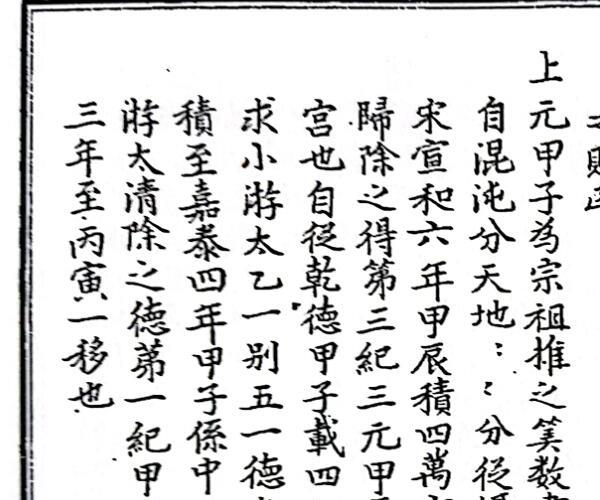 上元甲子為宗祖推之筭数
自混沌分天地：：分従
宋宣和六年甲辰積四萬
歸除之得第三紀三元甲
宮也自従乾德甲子載四
求小游太乙一别五一德
積至嘉泰四年甲子係中
游太清除之德苐一紀甲
三年至丙寅一移也